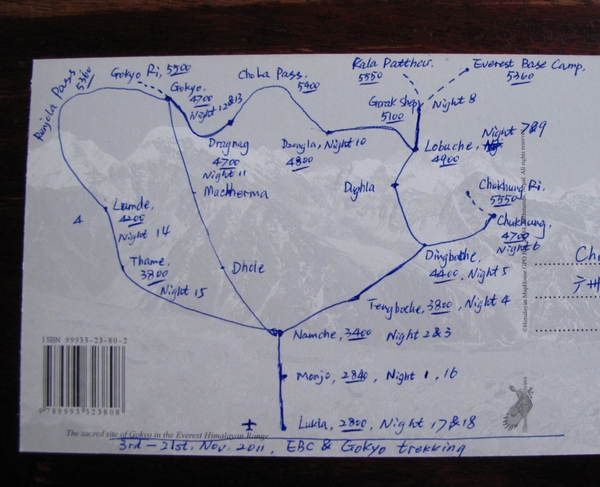 Renjola Pass
5360
Gokyo Ri, 5500
Gokyo.
4700
Night 12&13
ChoLa Pass.
5400
Kala Patthar.
5550
Everest Base Camp.
5360
Gorak Shep
5100
Night 8
Dragnag
4700
Night 11
Dzongla, Night 10
4800
Lobuche,
4900
Night 7&9
Machherma
Dughla
Chukhung Ri,
5550
Chukhung,
4700
Night 6
Lumde,
4200
Night 14
4
Thame,
3800
Night 15
Dhole
Dingboche,
4400, Night 5
Tengboche, 3800, Night 4
Namche, 3400 Night 2&3
Monjo, 2840, Night 1, 16
Lukla, 2800, Night 17&18
ISBN 99933-23-80-2
9 789993 323808
The sacred site of Gokyo in the Everest Himalayan Range
3rd-21st, Nov. 2011, EBC & Gokyo trekking
All rights reserved.
Ch